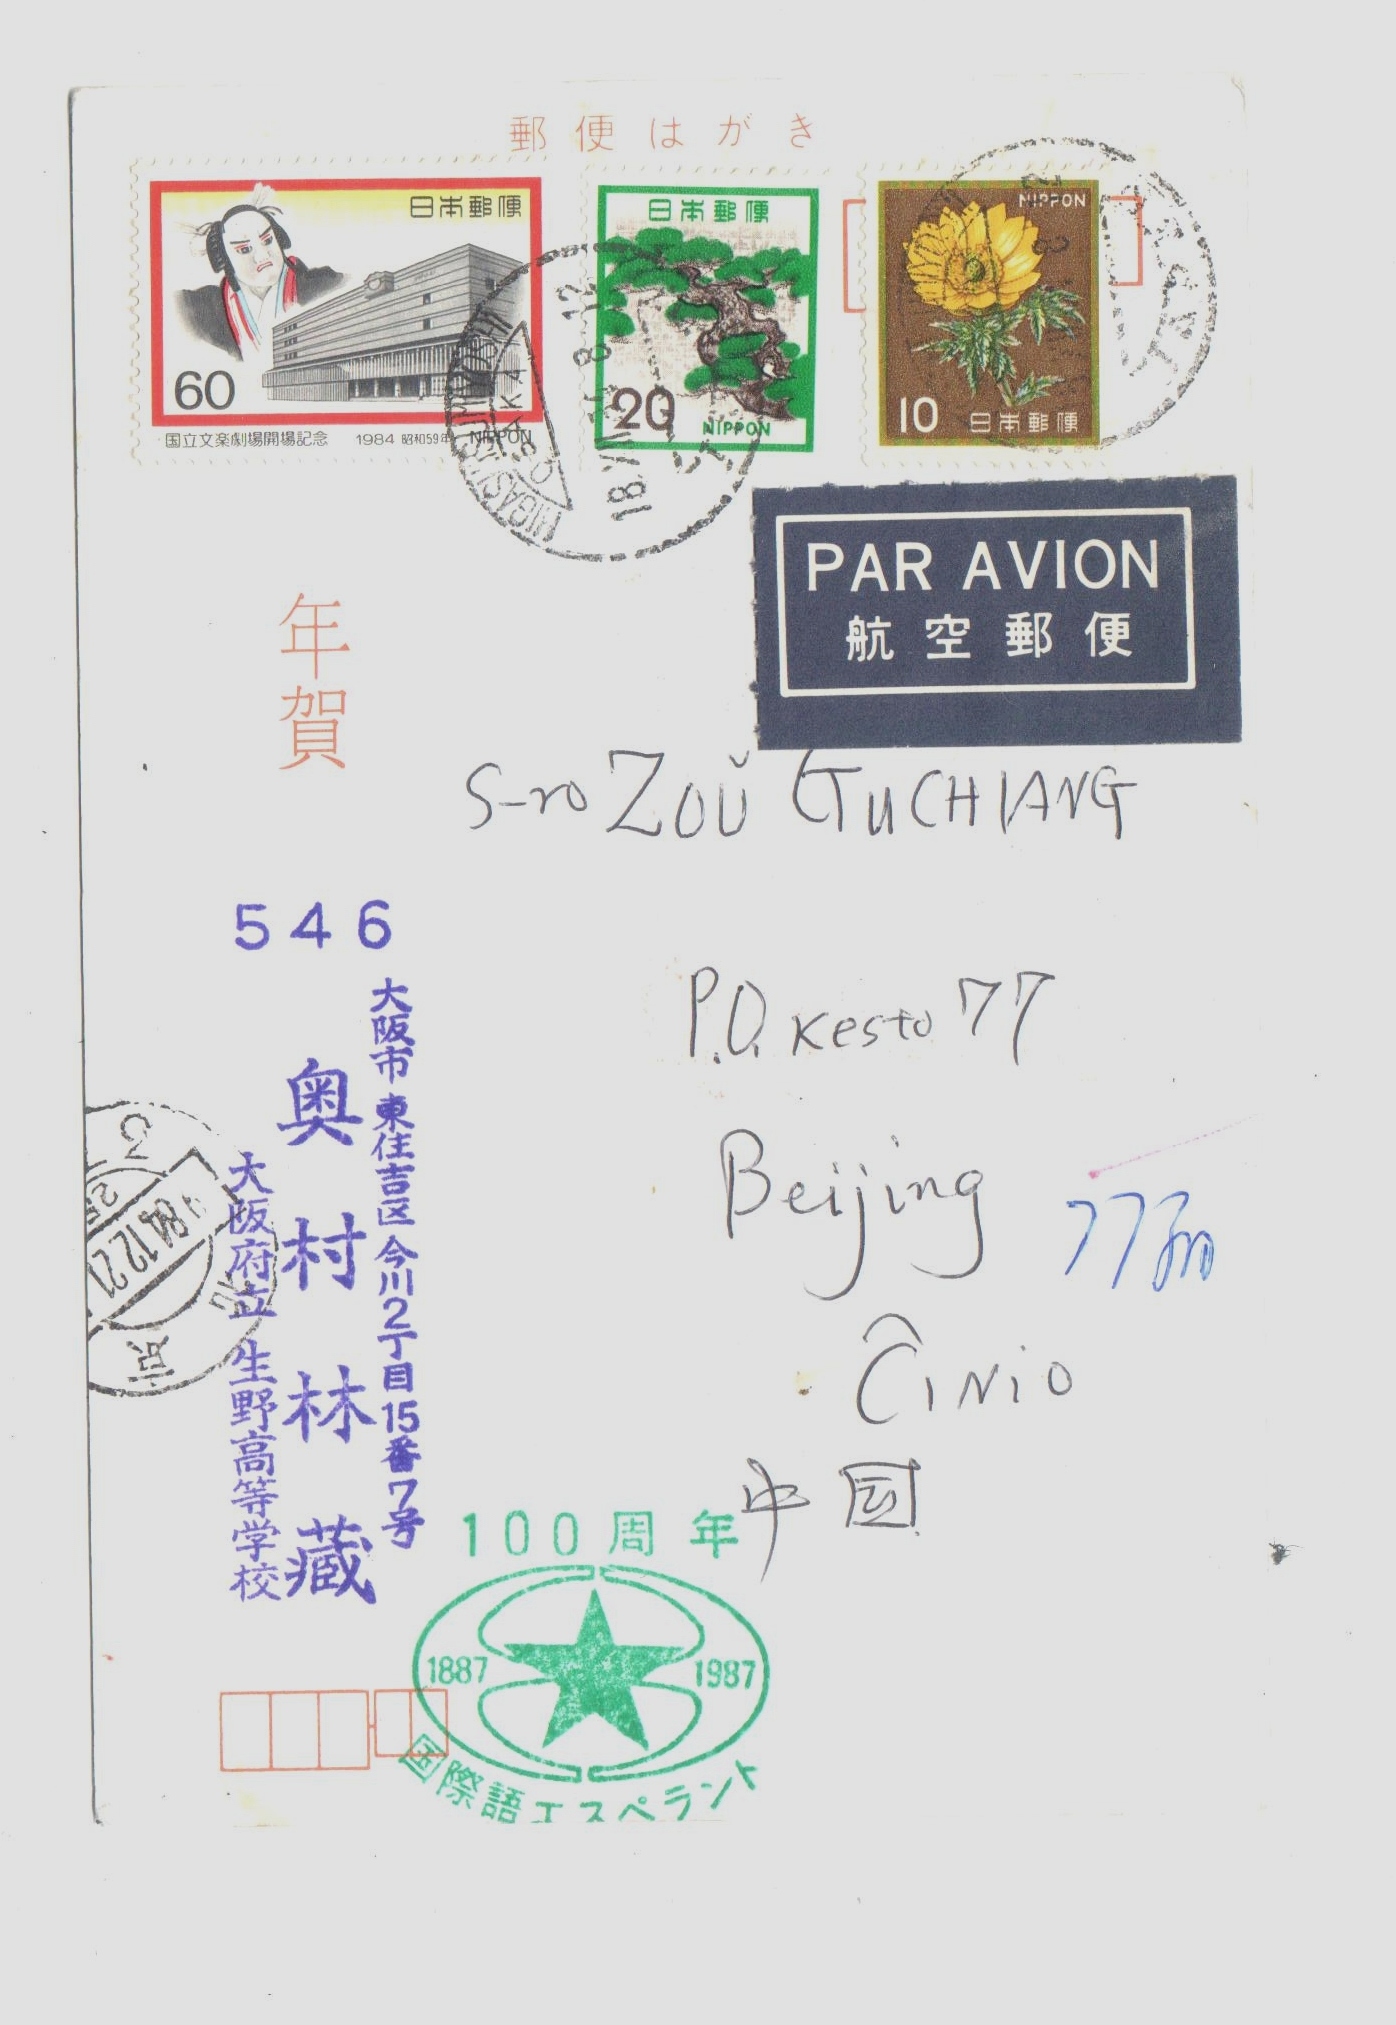 郵便はがき
日本郵便
60
国立文楽劇場開場記念 1984 昭和59年 NIPPON
日本郵便
20
NIPPON
NIPPON
10 日本郵便
HIGASISUMIYOSHI
OSAKA
18.XII.84
8-12
PAR AVION
航空郵便
年賀
S-ro ZOŬ GUCHIANG
P.O. Kesto 77
Beijing
Ĉinio
中国
546
大阪市東住吉区今川2丁目15番7号
奥村林蔵
大阪府立生野高等学校
84.12.21
京
100周年
1887 1987
国際語エスペラント